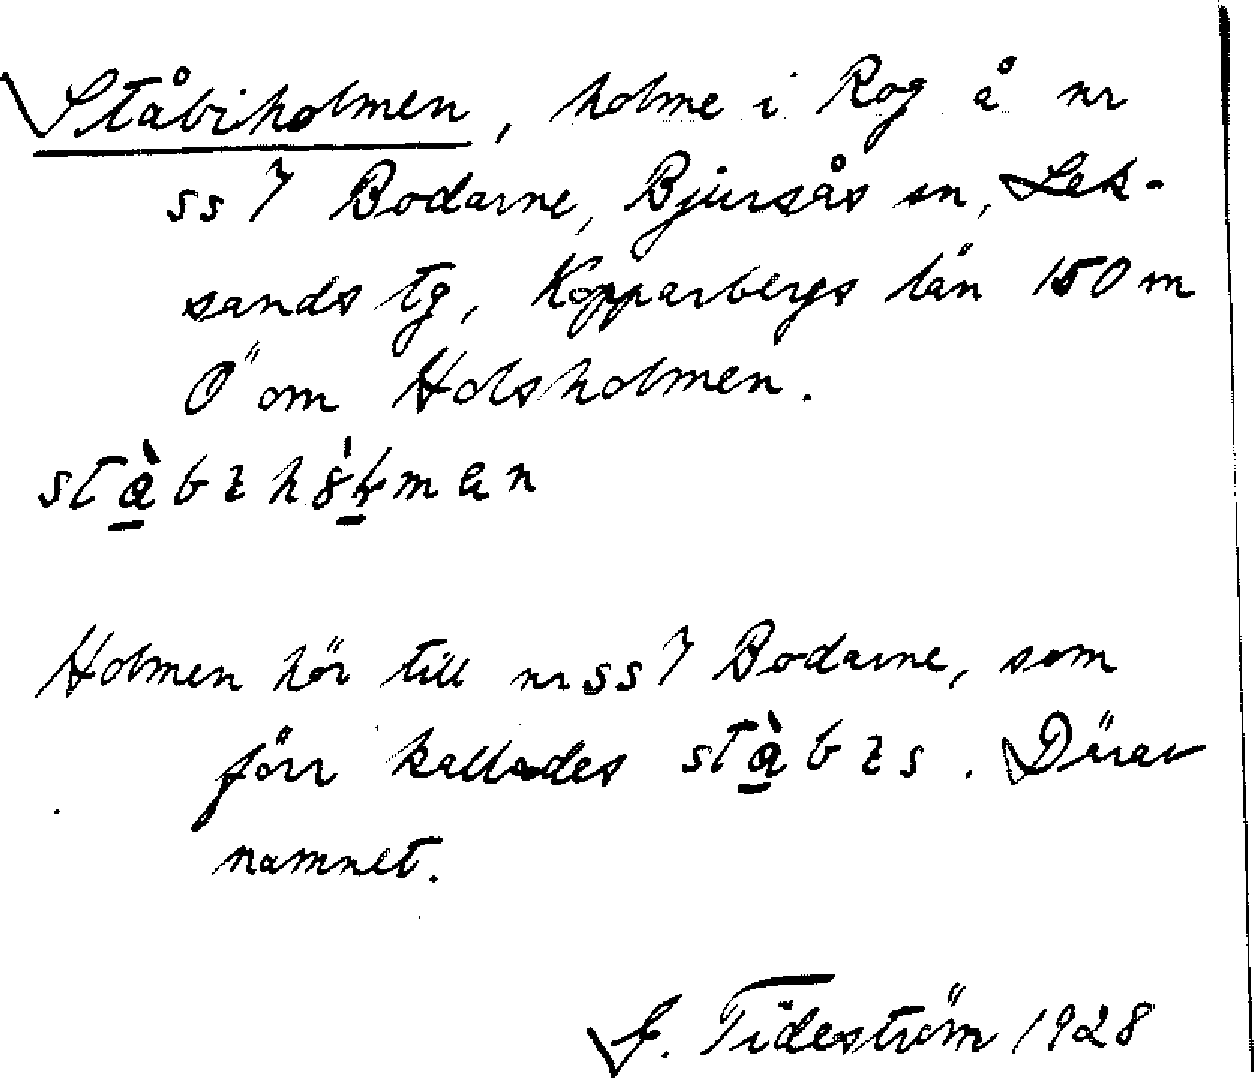 Ståbiholmen, holme i Rog å nr
ss 7 Bodarne, Bjursås sn, Lek-
sands tg, Kopparbergs län 150 m
Ö om Holsholmen.
Holmen hör till nr ss 7 Bodarne, som
förr kallades. Därav
namnet.
G. Tideström 1928